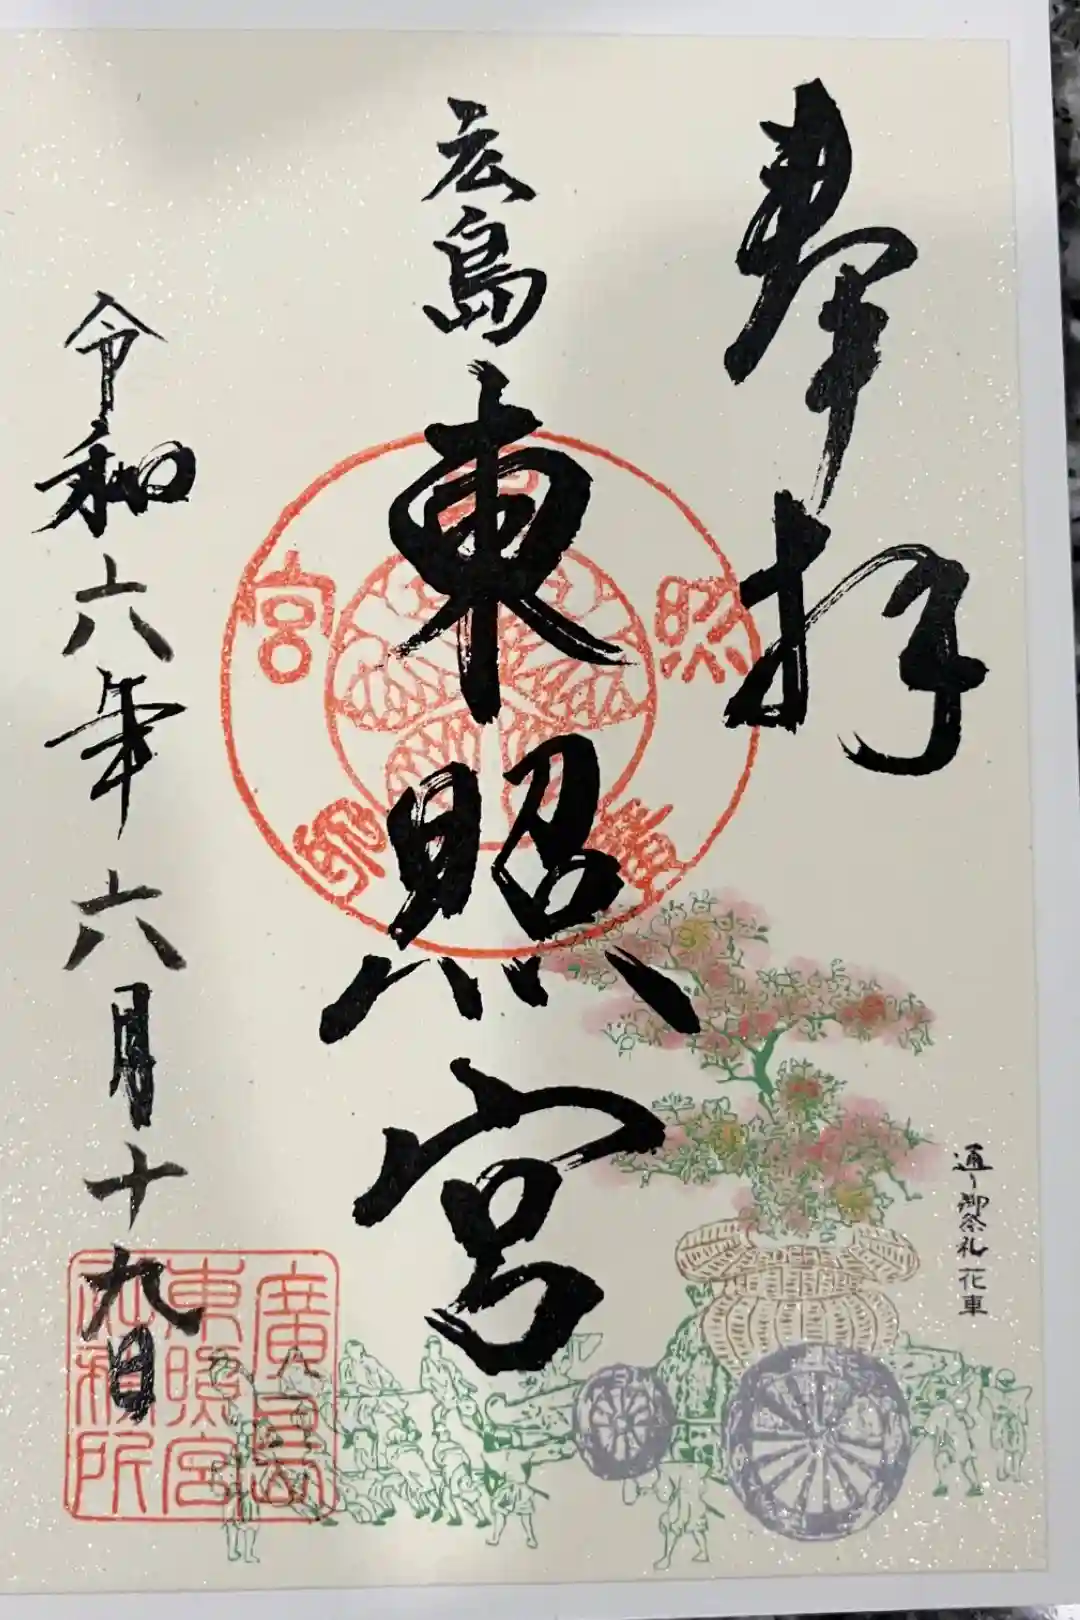 奉拝
広島
東照宮
令和六年六月十九日
通り御祭礼花車
廣島
東照宮
社務所
照
宮